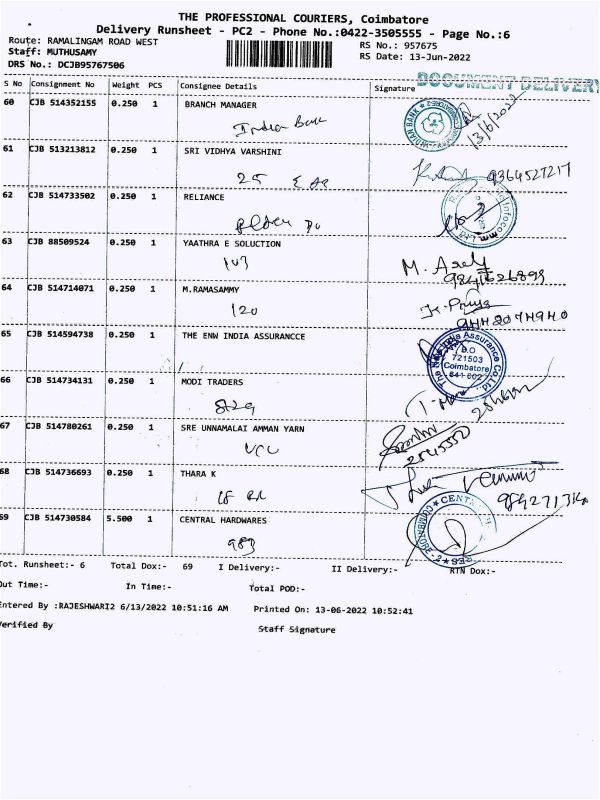 THE PROFESSIONAL COURIERS, Coimbatore
Delivery Runsheet - PC2 - Phone No.:0422-3505555 - Page No.:6
Route: RAMALINGAM ROAD WEST
RS No.: 957675
Staff: MUTHUSAMY
RS Date: 13-Jun-2022
DRS No.: DCJB95767506
DOCUMENT DELIVERY
S No Consignment No Weight PCS Consignee Details Signature
60 CJB 514352155 0.250 1 BRANCH MANAGER
Indian Bank
13/6/2022
61 CJB 513213812 0.250 1 SRI VIDHYA VARSHINI
25
9364527217
62 CJB 514733502 0.250 1 RELIANCE
63 CJB 88509524 0.250 1 YAATHRA E SOLUCTION
103
64 CJB 514714071 0.250 1 M.RAMASAMMY
120
65 CJB 514594738 0.250 1 THE ENW INDIA ASSURANCCE
The New India Assurance Co.Ltd.
D.O
721503
Coimbatore
641 002
66 CJB 514734131 0.250 1 MODI TRADERS
67 CJB 514780261 0.250 1 SRE UNNAMALAI AMMAN YARN
2545550
68 CJB 514736693 0.250 1 THARA K
69 CJB 514730584 5.500 1 CENTRAL HARDWARES
983
Tot. Runsheet:- 6 Total Dox:- 69 I Delivery:- II Delivery:- RTN Dox:-
Out Time:- In Time:- Total POD:-
Entered By :RAJESHWARI2 6/13/2022 10:51:16 AM Printed On: 13-06-2022 10:52:41
Verified By Staff Signature